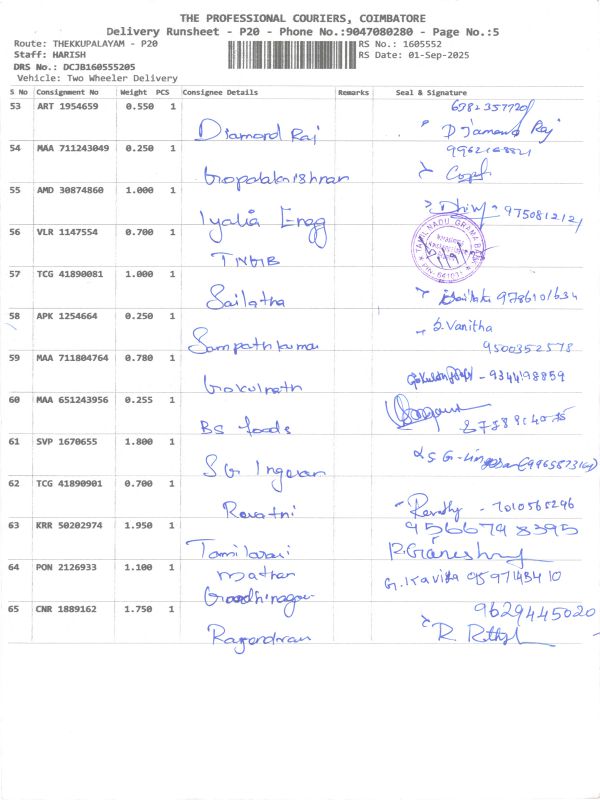 THE PROFESSIONAL COURIERS, COIMBATORE
Delivery Runsheet - P20 - Phone No.:9047080280 - Page No.:5
Route: THEKKUPALAYAM - P20
RS No.: 1605552
Staff: HARISH
RS Date: 01-Sep-2025
DRS No.: DCJB160555205
Vehicle: Two Wheeler Delivery
S No Consignment No Weight PCS Consignee Details Remarks Seal & Signature
53 ART 1954659 0.550 1
Diamond Raj
Djamond Raj
54 MAA 711243049 0.250 1
Gopalakrishnan
55 AMD 30874860 1.000 1
9750812121
56 VLR 1147554 0.700 1
TNGB
TAMIL NADU GRAMA BANK
57 TCG 41890081 1.000 1
Sailatha
Sailatha 9786101634
58 APK 1254664 0.250 1
Sampathkumar
S. Vanitha
9500352578
59 MAA 711804764 0.780 1
Gokulnath
- 9344198859
60 MAA 651243956 0.255 1
BS foods
61 SVP 1670655 1.800 1
62 TCG 41890901 0.700 1
Revathi
Revathy - 7010565296
63 KRR 50202974 1.950 1
9566798395
Tamilarasi
R.Ganesh
64 PON 2126933 1.100 1
Mathan
G. Kavitha
65 CNR 1889162 1.750 1
9629445020
Rajendran